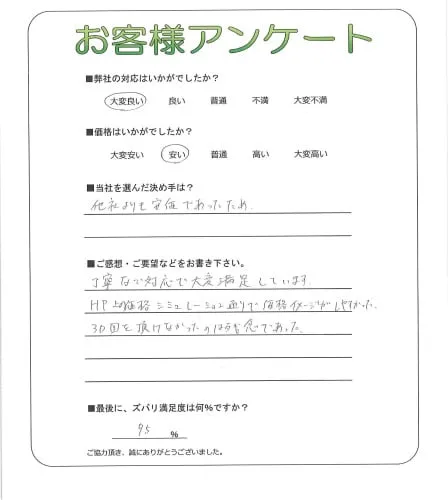 お客様アンケート
■弊社の対応はいかがでしたか？
大変良い 良い 普通 不満 大変不満
■価格はいかがでしたか？
大変安い 安い 普通 高い 大変高い
■当社を選んだ決め手は？
他社よりも安価であったため.
■ご感想・ご要望などをお書き下さい。
丁寧なご対応で大変満足しています.
HP上価格シミュレーション通りで価格イメージがしやすかった.
3D図を頂けなかったのは残念であった.
■最後に、ズバリ満足度は何％ですか？
95 %
ご協力頂き、誠にありがとうございました。